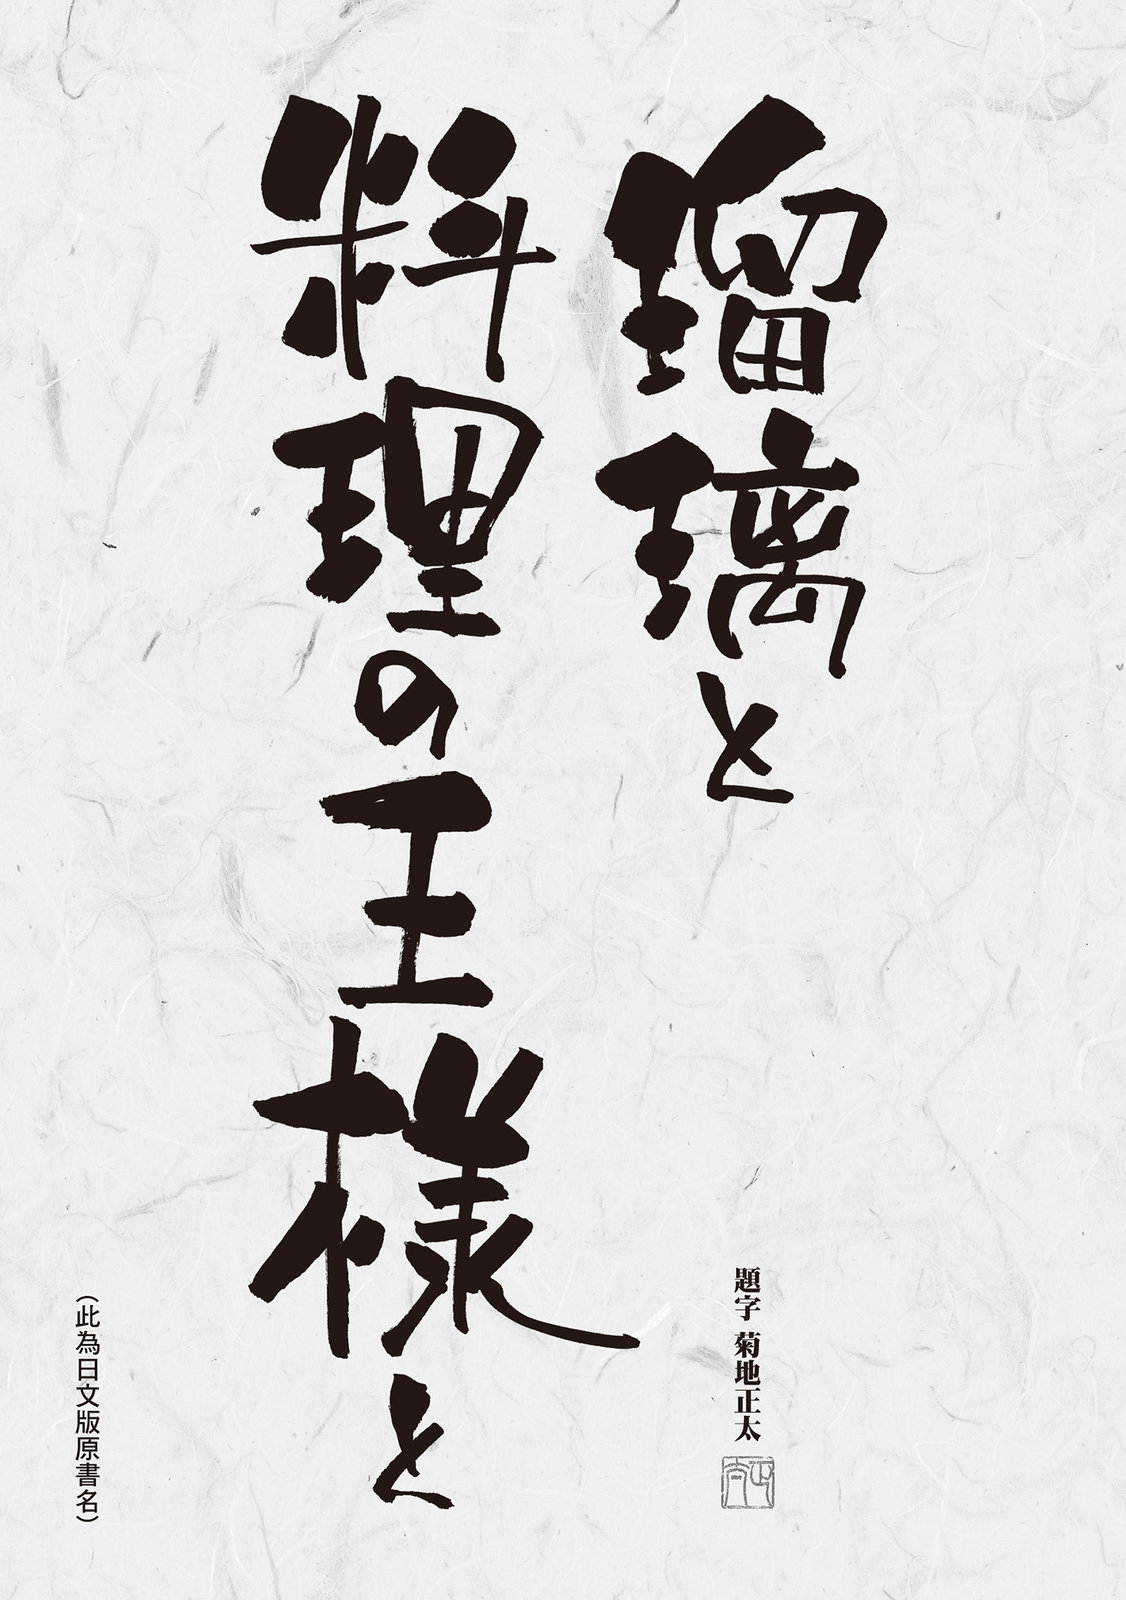 瑠璃と
料理の王様と
題字 菊地正太
正太
（此為日文版原書名）